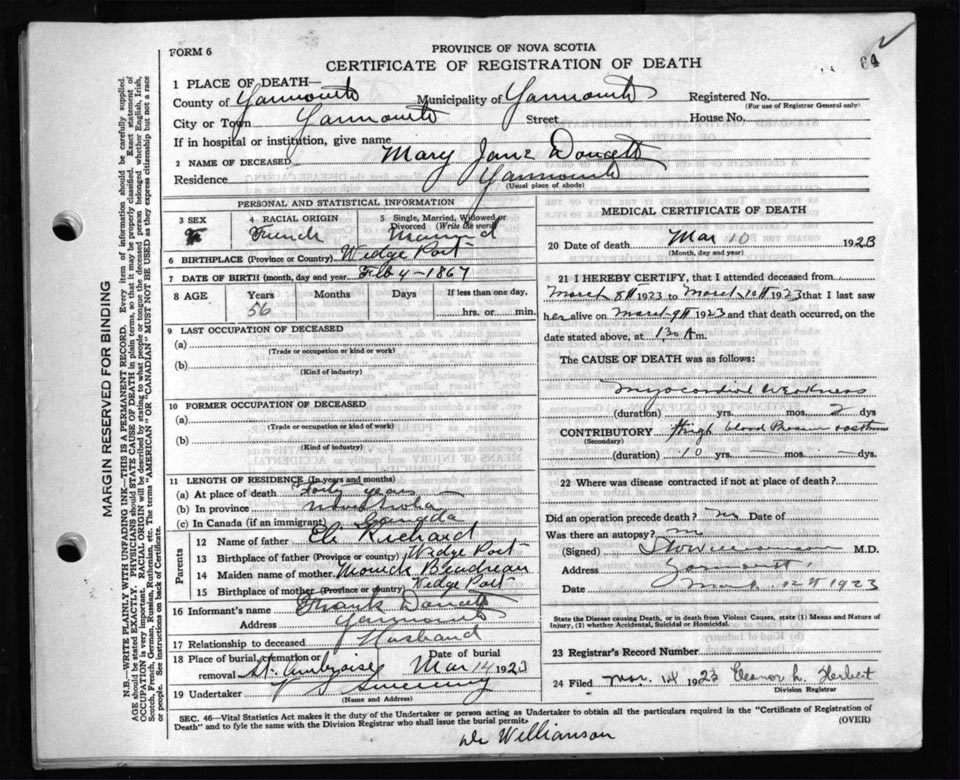 64
FORM 6
PROVINCE OF NOVA SCOTIA
CERTIFICATE OF REGISTRATION OF DEATH
1 PLACE OF DEATH—
County of Yarmouth Municipality of Yarmouth Registered No.
(For use of Registrar General only)
City or Town Yarmouth Street House No.
If in hospital or institution, give name
2 NAME OF DECEASED Mary Jane Doucett
Residence Yarmouth
(Usual place of abode)
PERSONAL AND STATISTICAL INFORMATION
3 SEX F
4 RACIAL ORIGIN French
5 Single, Married, Widowed or Divorced (Write the word) Married
6 BIRTHPLACE (Province or Country) Wedge Port
7 DATE OF BIRTH (month, day and year) Feb 4 - 1867
8 AGE Years Months Days If less than one day,
56 hrs. or min.
9 LAST OCCUPATION OF DECEASED
(a)
(Trade or occupation or kind or work)
(b)
(Kind of industry)
10 FORMER OCCUPATION OF DECEASED
(a)
(Trade or occupation or kind of work)
(b)
(Kind of industry)
11 LENGTH OF RESIDENCE (In years and months)
(a) At place of death Forty years
(b) In province Nova Scotia
(c) In Canada (if an immigrant) Canada
Parents
12 Name of father Eli Richard
13 Birthplace of father (Province or country) Wedge Port
14 Maiden name of mother Boudreau
15 Birthplace of mother (Province or country) Wedge Port
16 Informant's name Frank Doucett
Address Yarmouth
17 Relationship to deceased Husband
18 Place of burial, cremation or removal St. Ambroise Date of burial Mar 14 1923
19 Undertaker Sweeny
(Name and Address)
MEDICAL CERTIFICATE OF DEATH
20 Date of death Mar 10 1923
(Month, day and year)
21 I HEREBY CERTIFY, that I attended deceased from
March 8th 1923 to March 10th 1923 that I last saw
her alive on March 9th 1923 and that death occurred, on the
date stated above, at 1.30 A m.
The CAUSE OF DEATH was as follows:
Myocardial Weakness
(duration) yrs. mos. 2 dys
CONTRIBUTORY High blood Pressure asthma
(Secondary)
(duration) 10 yrs. — mos. — dys.
22 Where was disease contracted if not at place of death?
Did an operation precede death? no Date of
Was there an autopsy? no
(Signed) Williamson M.D.
Address Yarmouth
Date March 12th 1923
State the Disease causing Death, or in death from Violent Causes, state (1) Means and Nature of
Injury, (2) whether Accidental, Suicidal or Homicidal.
23 Registrar's Record Number
24 Filed Mar. 14 1923 Eleanor L. Herbert
Division Registrar
SEC. 46—Vital Statistics Act makes it the duty of the Undertaker or person acting as Undertaker to obtain all the particulars required in the "Certificate of Registration of
Death" and to fyle the same with the Division Registrar who shall issue the burial permit.
(OVER)
Dr Williamson
MARGIN RESERVED FOR BINDING
N.B.—WRITE PLAINLY WITH UNFADING INK—THIS IS A PERMANENT RECORD. Every item of information should be carefully supplied.
AGE should be stated EXACTLY. PHYSICIANS should STATE CAUSE OF DEATH in plain terms, so that it may be properly classified. Exact statement of
OCCUPATION is very important. RACIAL ORIGIN will be described by stating to what people or tongue the deceased person belonged whether English, Irish,
Scotch, French, German, Russian, Ruthenian, etc. The terms "AMERICAN" or "CANADIAN" MUST NOT BE USED as they express citizenship but not a race
or people. See instructions on back of Certificate.